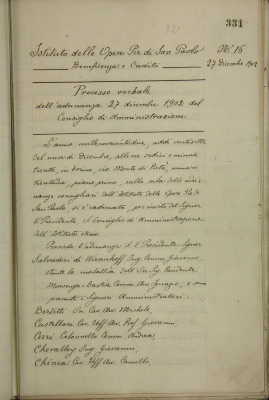 331
Istituto delle Opere Pie di San Paolo N.° 16
Beneficenza e Credito 27 Dicembre 1902
Processo verbale
dell'adunanza 27 dicembre 1902 del
Consiglio di Amministrazione
L'anno millenovecentodue, addì ventisette
del mese di Dicembre, alle ore sedici e minuti
trenta, in Torino, via Monte di Pietà, numero
trentadue, piano primo, nella sala delle adu-
nanze consigliari dell'Istituto delle Opere Pie di
San Paolo, si è radunato, per invito del Signor
V. Presidente, il Consiglio di Amministrazione
dell'Istituto stesso.
Presiede l'adunanza il V. Presidente Signor
Salvadori di Wiesenhoff Ing. Comm. Giovanni
stante la malattia dell' Sig. Presidente
Marenga-Bastia Comm. Avv. Ignazio, e sono
presenti i Signori Amministratori:
Bertetti Cav. Avv. Michele,
Castellari Cav. Uff. Avv. Prof. Giovanni,
Cerri Colonnello Comm. Andrea,
Chevalley Ing. Giovanni,
Chinea Cav. Uff. Avv. Camillo,